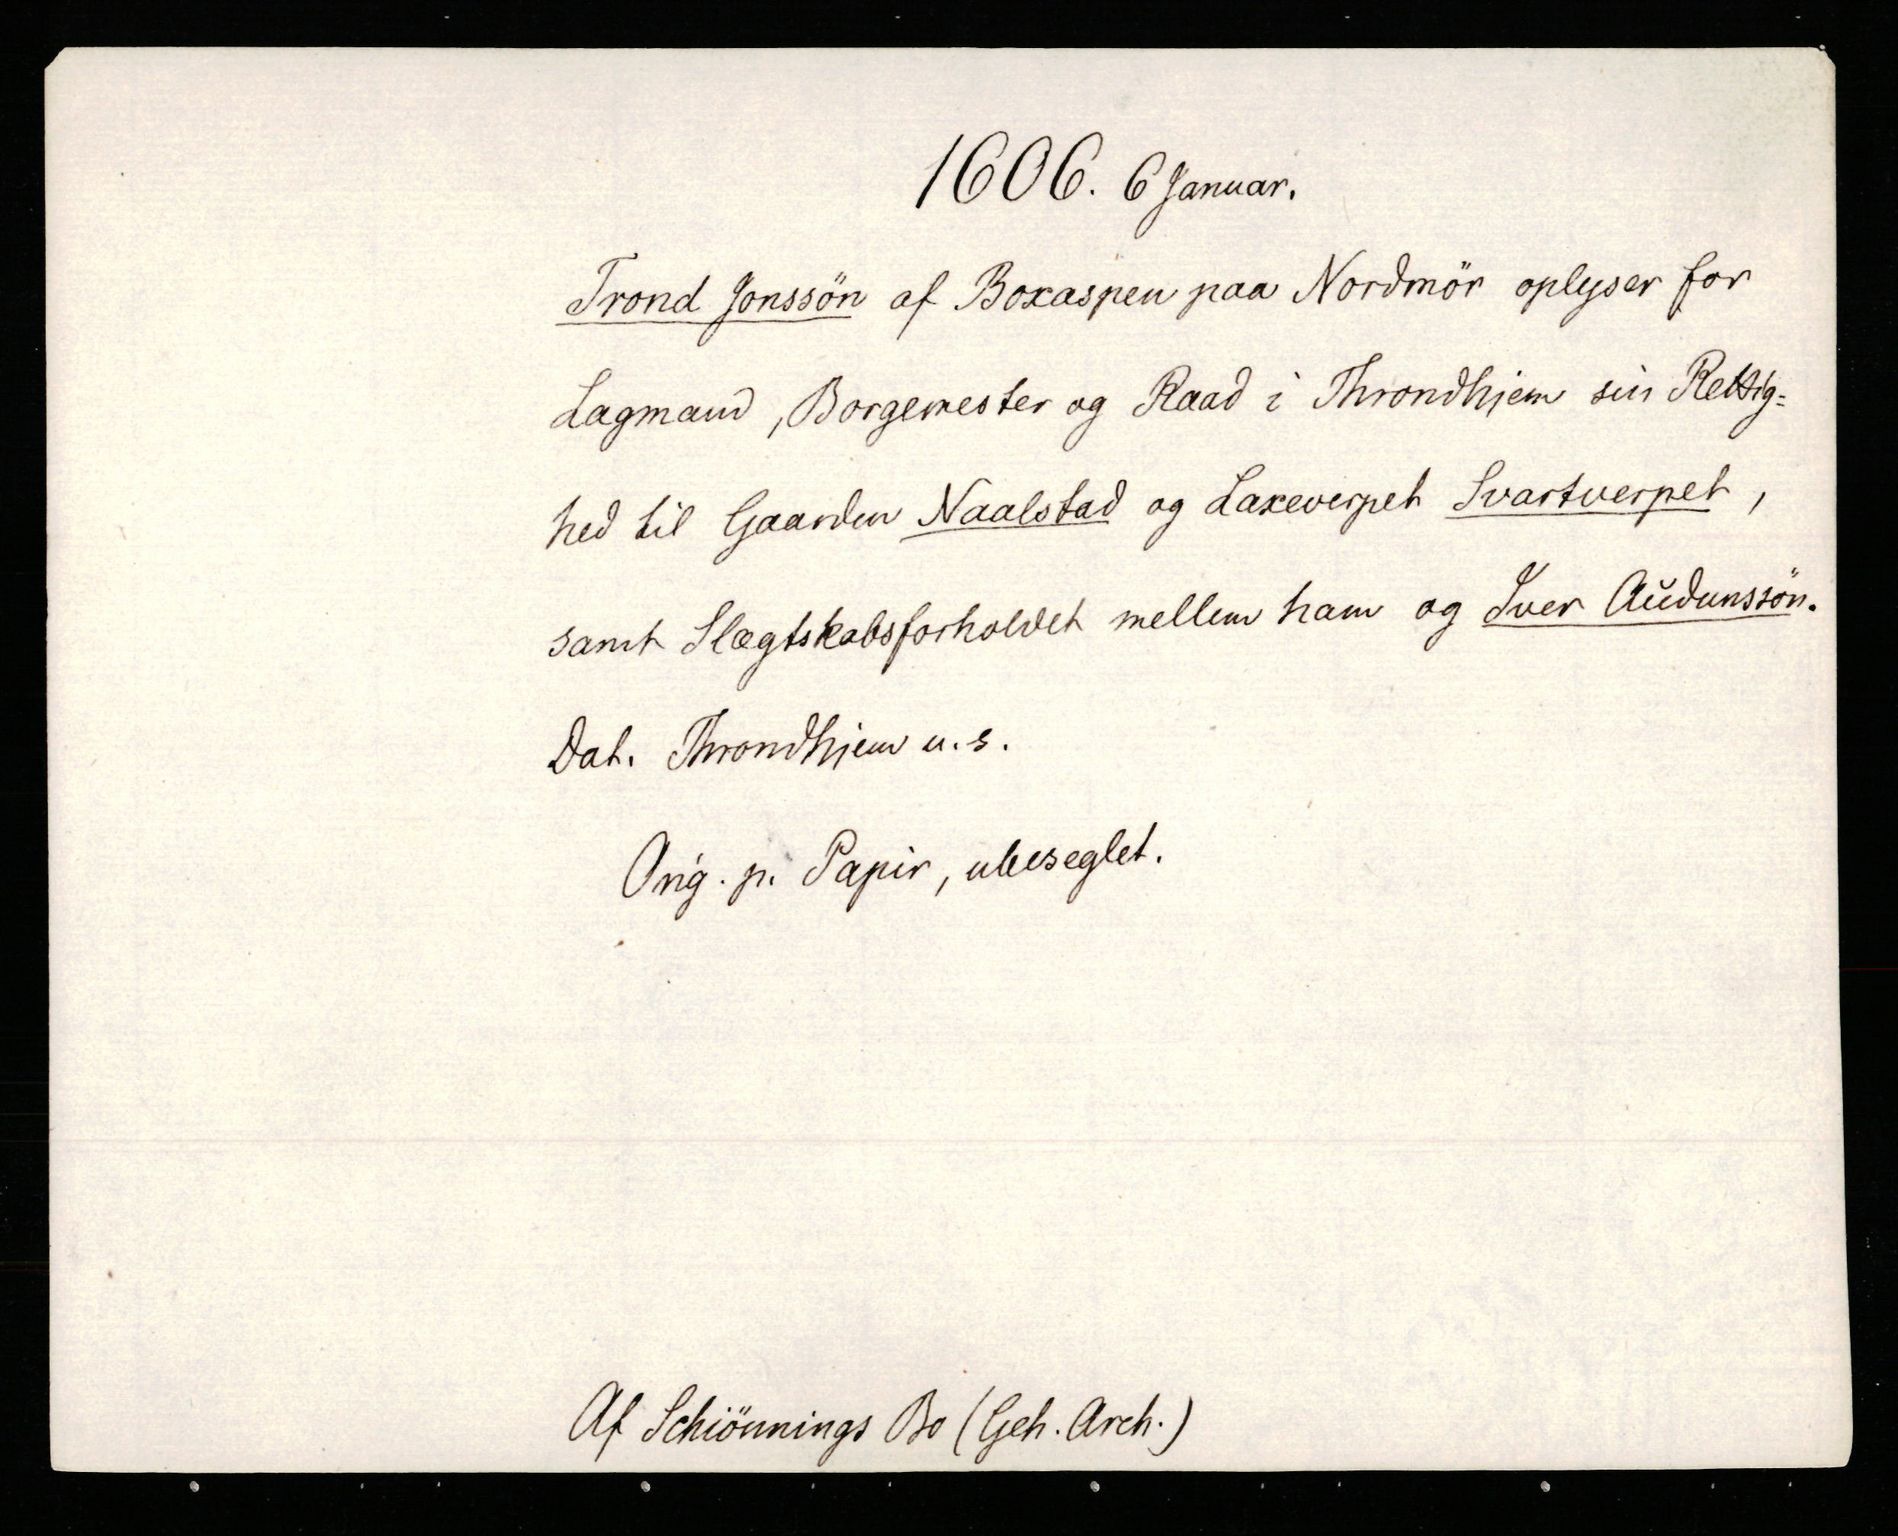 1606. 6 Januar.
Trond Jonssön af Boxaspen paa Nordmör oplyser for
Lagmand, Borgemester og Raad i Throndhjem sin Rettig=
hed til Gaarden Naalstad og Laxeverpet Svartverpet,
samt Slægtskabsforholdet mellem ham og Iver Audunssön.
Dat. Throndhjem u. s.
Orig. p. Papir, ubeseglet.
Af Schiönnings Bo (Geh. Arch.)